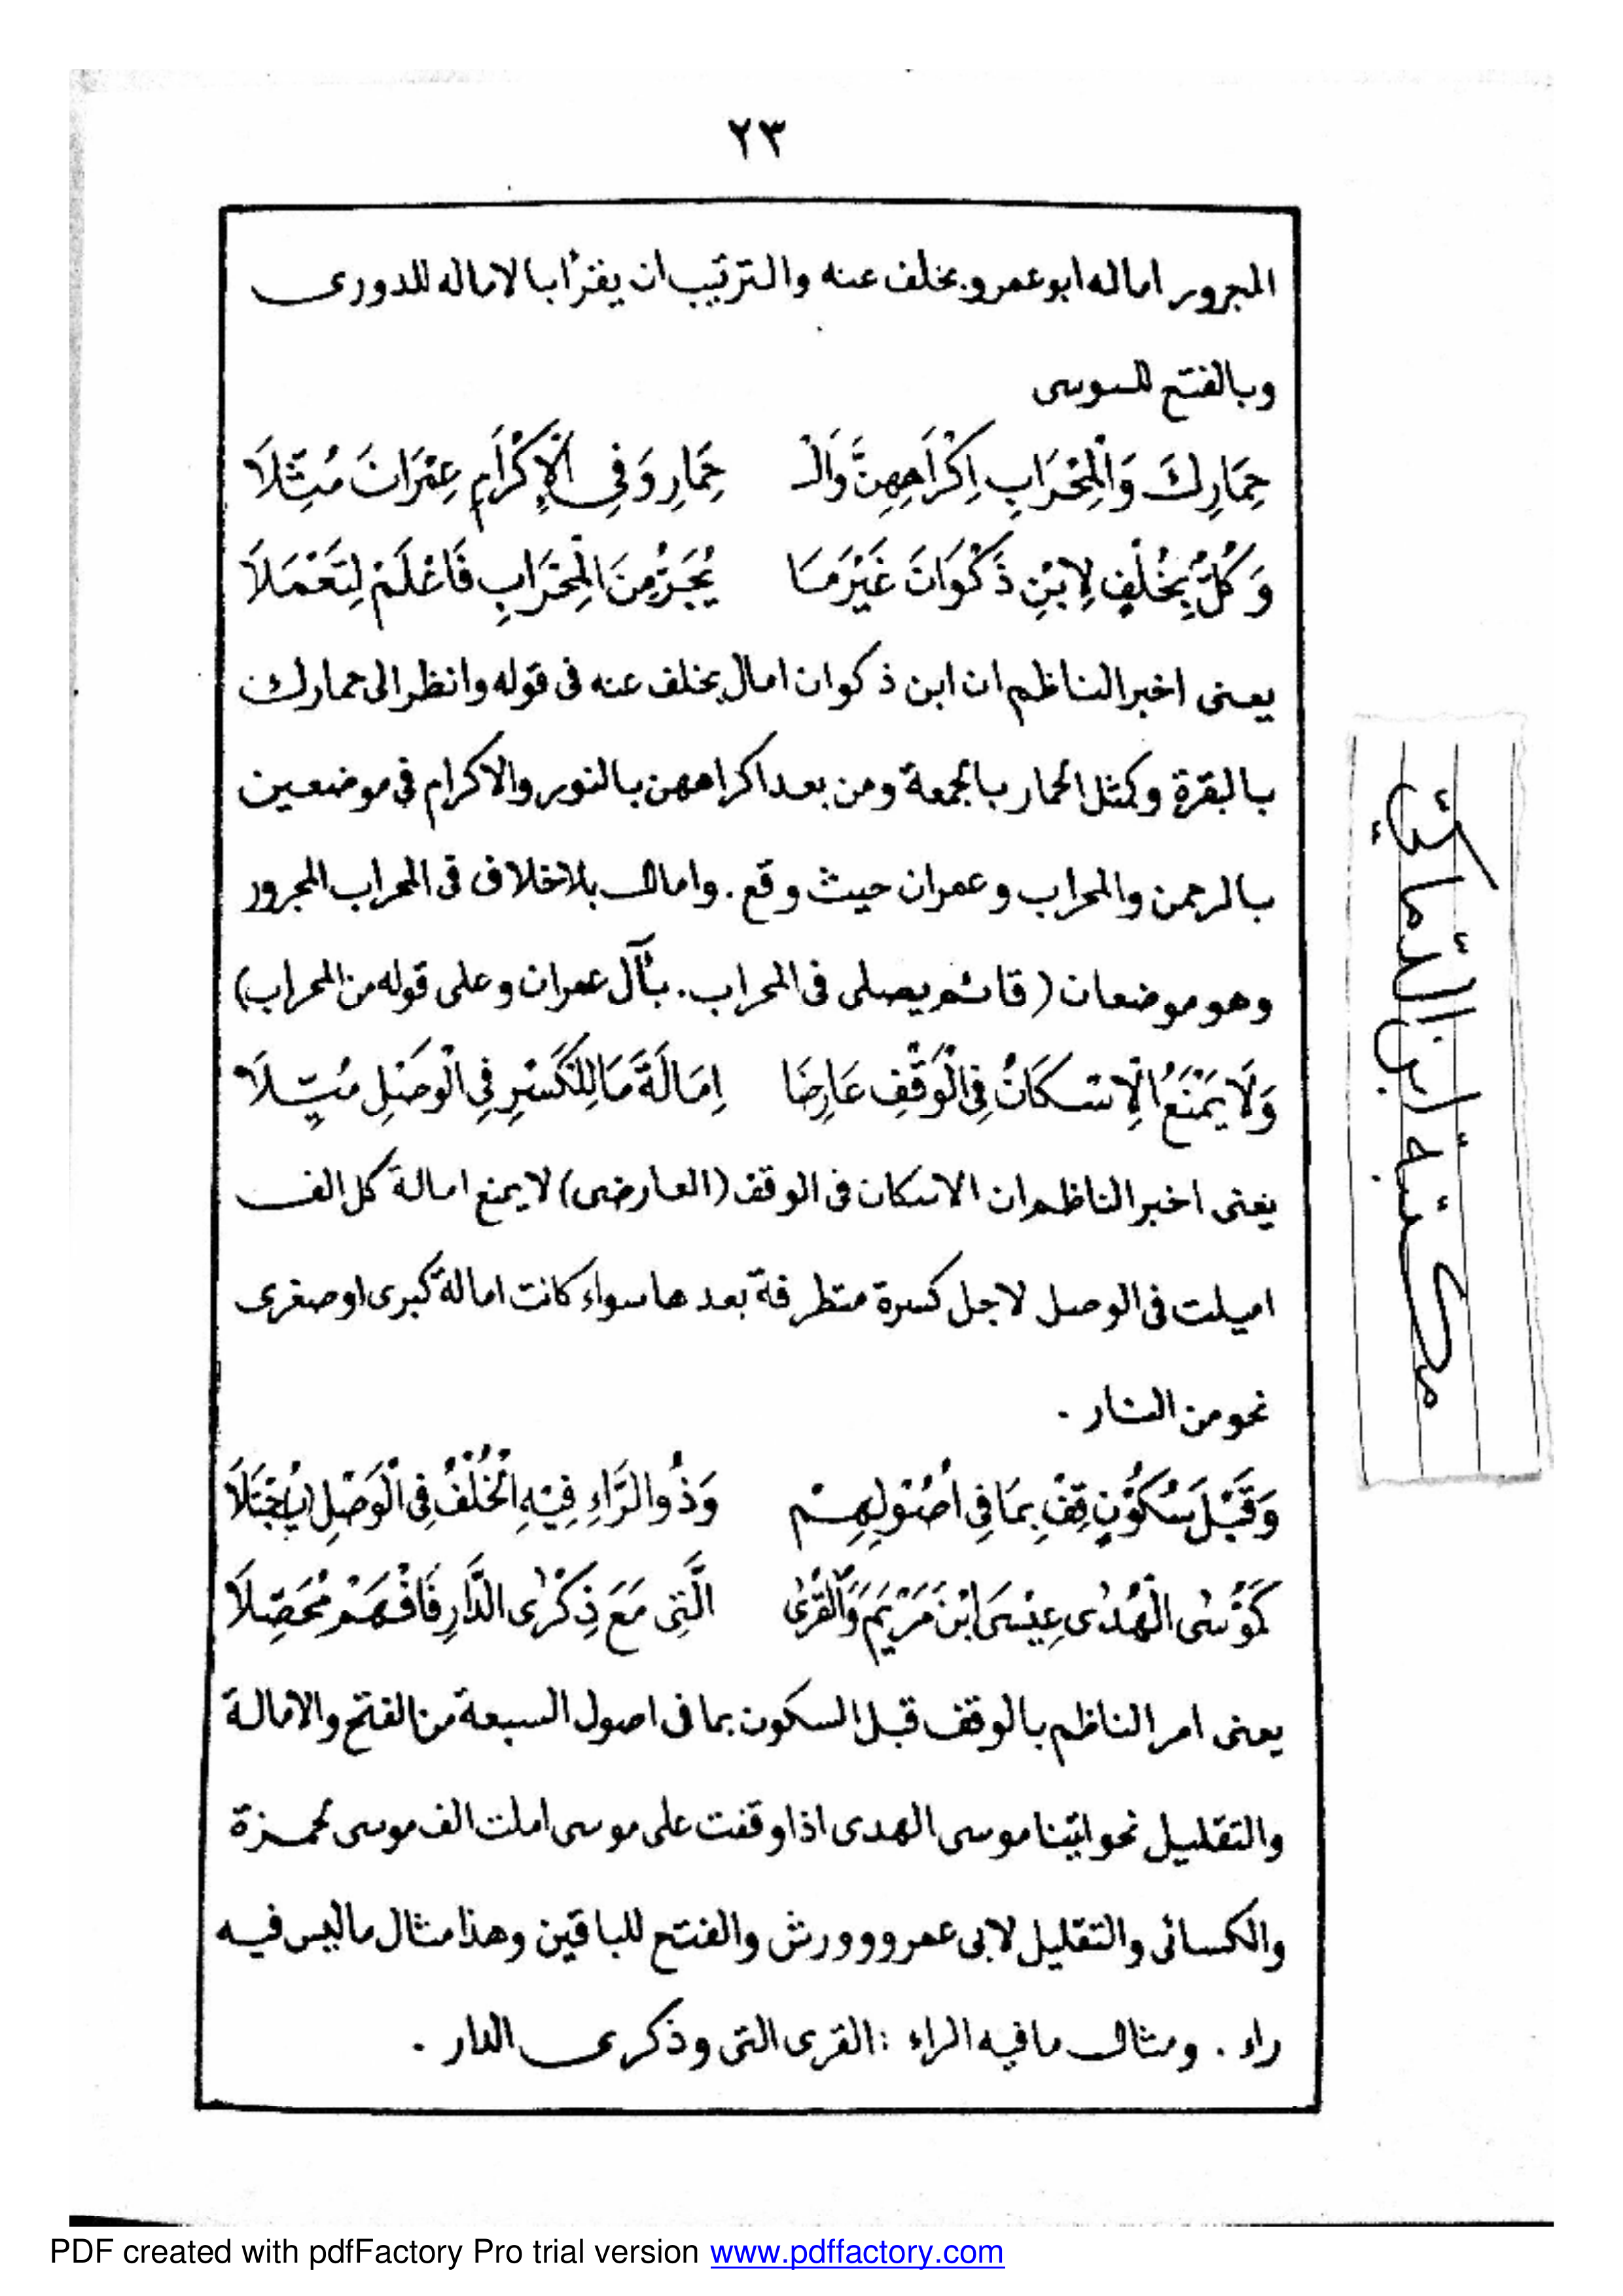 ٢٣
المجرور اماله ابو عمرو بخلف عنه والترتيب ان يقرأ بالاماله للدورى
وبالفتح للسوسى
حِمَارِكَ وَالْمِحْرَابِ اِكْرَاهِهِنَّ وَالْـ حِمَارِ وَفِى الْاِكْرَامِ عِمْرَانَ مُثِّلَا
وَكُلٌّ بِخُلْفٍ لِابْنِ ذَكْوَانَ غَيْرَ مَا يُجَرُّ مِنَ الْمِحْرَابِ فَاعْلَمْ لِتَعْمَلَا
يعنى اخبر الناظم ان ابن ذكوان امال بخلف عنه فى قوله وانظر الى حمارك
بالبقرة وكمثل الحمار بالجمعة ومن بعد اكراههن بالنور والاكرام فى موضعين
بالرحمن والمحراب وعمران حيث وقع . وامال بلا خلاف فى المحراب المجرور
وهو موضعان (قائم يصلى فى المحراب . بآل عمران وعلى قوله من المحراب)
وَلَا يَمْنَعُ الْاِسْكَانُ فِى الْوَقْفِ عَارِضَا اِمَالَةَ مَا لِلْكَسْرِ فِى الْوَصْلِ مُيِّلَا
يعنى اخبر الناظم ان الاسكان فى الوقف (العارضى) لا يمنع امالة كل الف
اميلت فى الوصل لاجل كسرة متطرفة بعدها سواء كانت امالة كبرى او صغرى
نحو من النار .
وَقَبْلَ سُكُوْنٍ قِفْ بِمَا فِى اُصُوْلِهِمْ وَذُو الرَّاءِ فِيْهِ الْخُلْفُ فِى الْوَصْلِ يُجْتَلَا
كَمُوْسٰى الْهُدٰى عِيْسَى ابْنَ مَرْيَمَ وَالْقُرٰى الَّتِى مَعَ ذِكْرٰى الدَّارِ فَافْهَمْ مُحَصِّلَا
يعنى امر الناظم بالوقف قبل السكون بما فى اصول السبعة من الفتح والامالة
والتقليل نحو اتينا موسى الهدى اذا وقفت على موسى املت الف موسى لحمزة
والكسائى والتقليل لابى عمرو وورش والفتح للباقين وهذا مثال ما ليس فيه
راء . ومثال ما فيه الراء : القرى التى وذكرى الدار .
مكتبة ابن الدماكي
PDF created with pdfFactory Pro trial version www.pdffactory.com